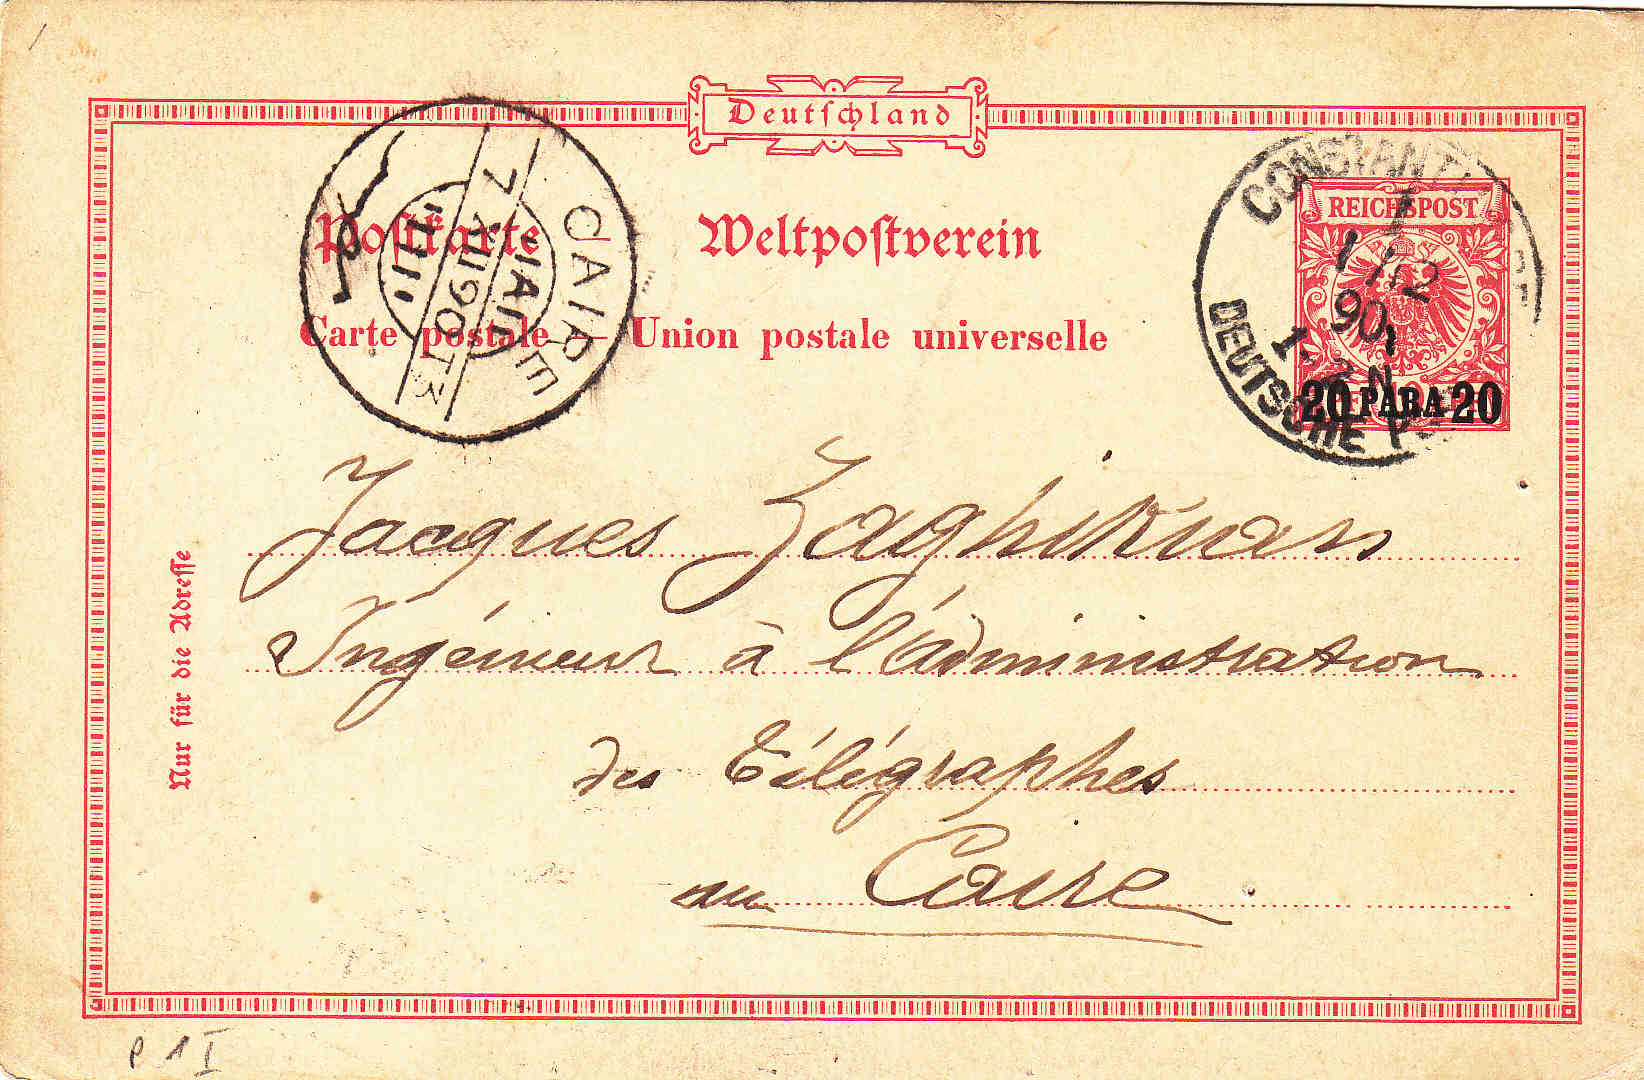 Deutschland
Postkarte Weltpostverein
Carte postale — Union postale universelle
REICHSPOST
20 PARA 20
CONSTANTI
1
1/12
90
1-2 N
DEUTSCHE P
CAIRE
7 XII 90 T3
Nur für die Adresse
Jacques Zaghikian
Ingénieur à l'administration
des Télégraphes
au Caire
P 1 I